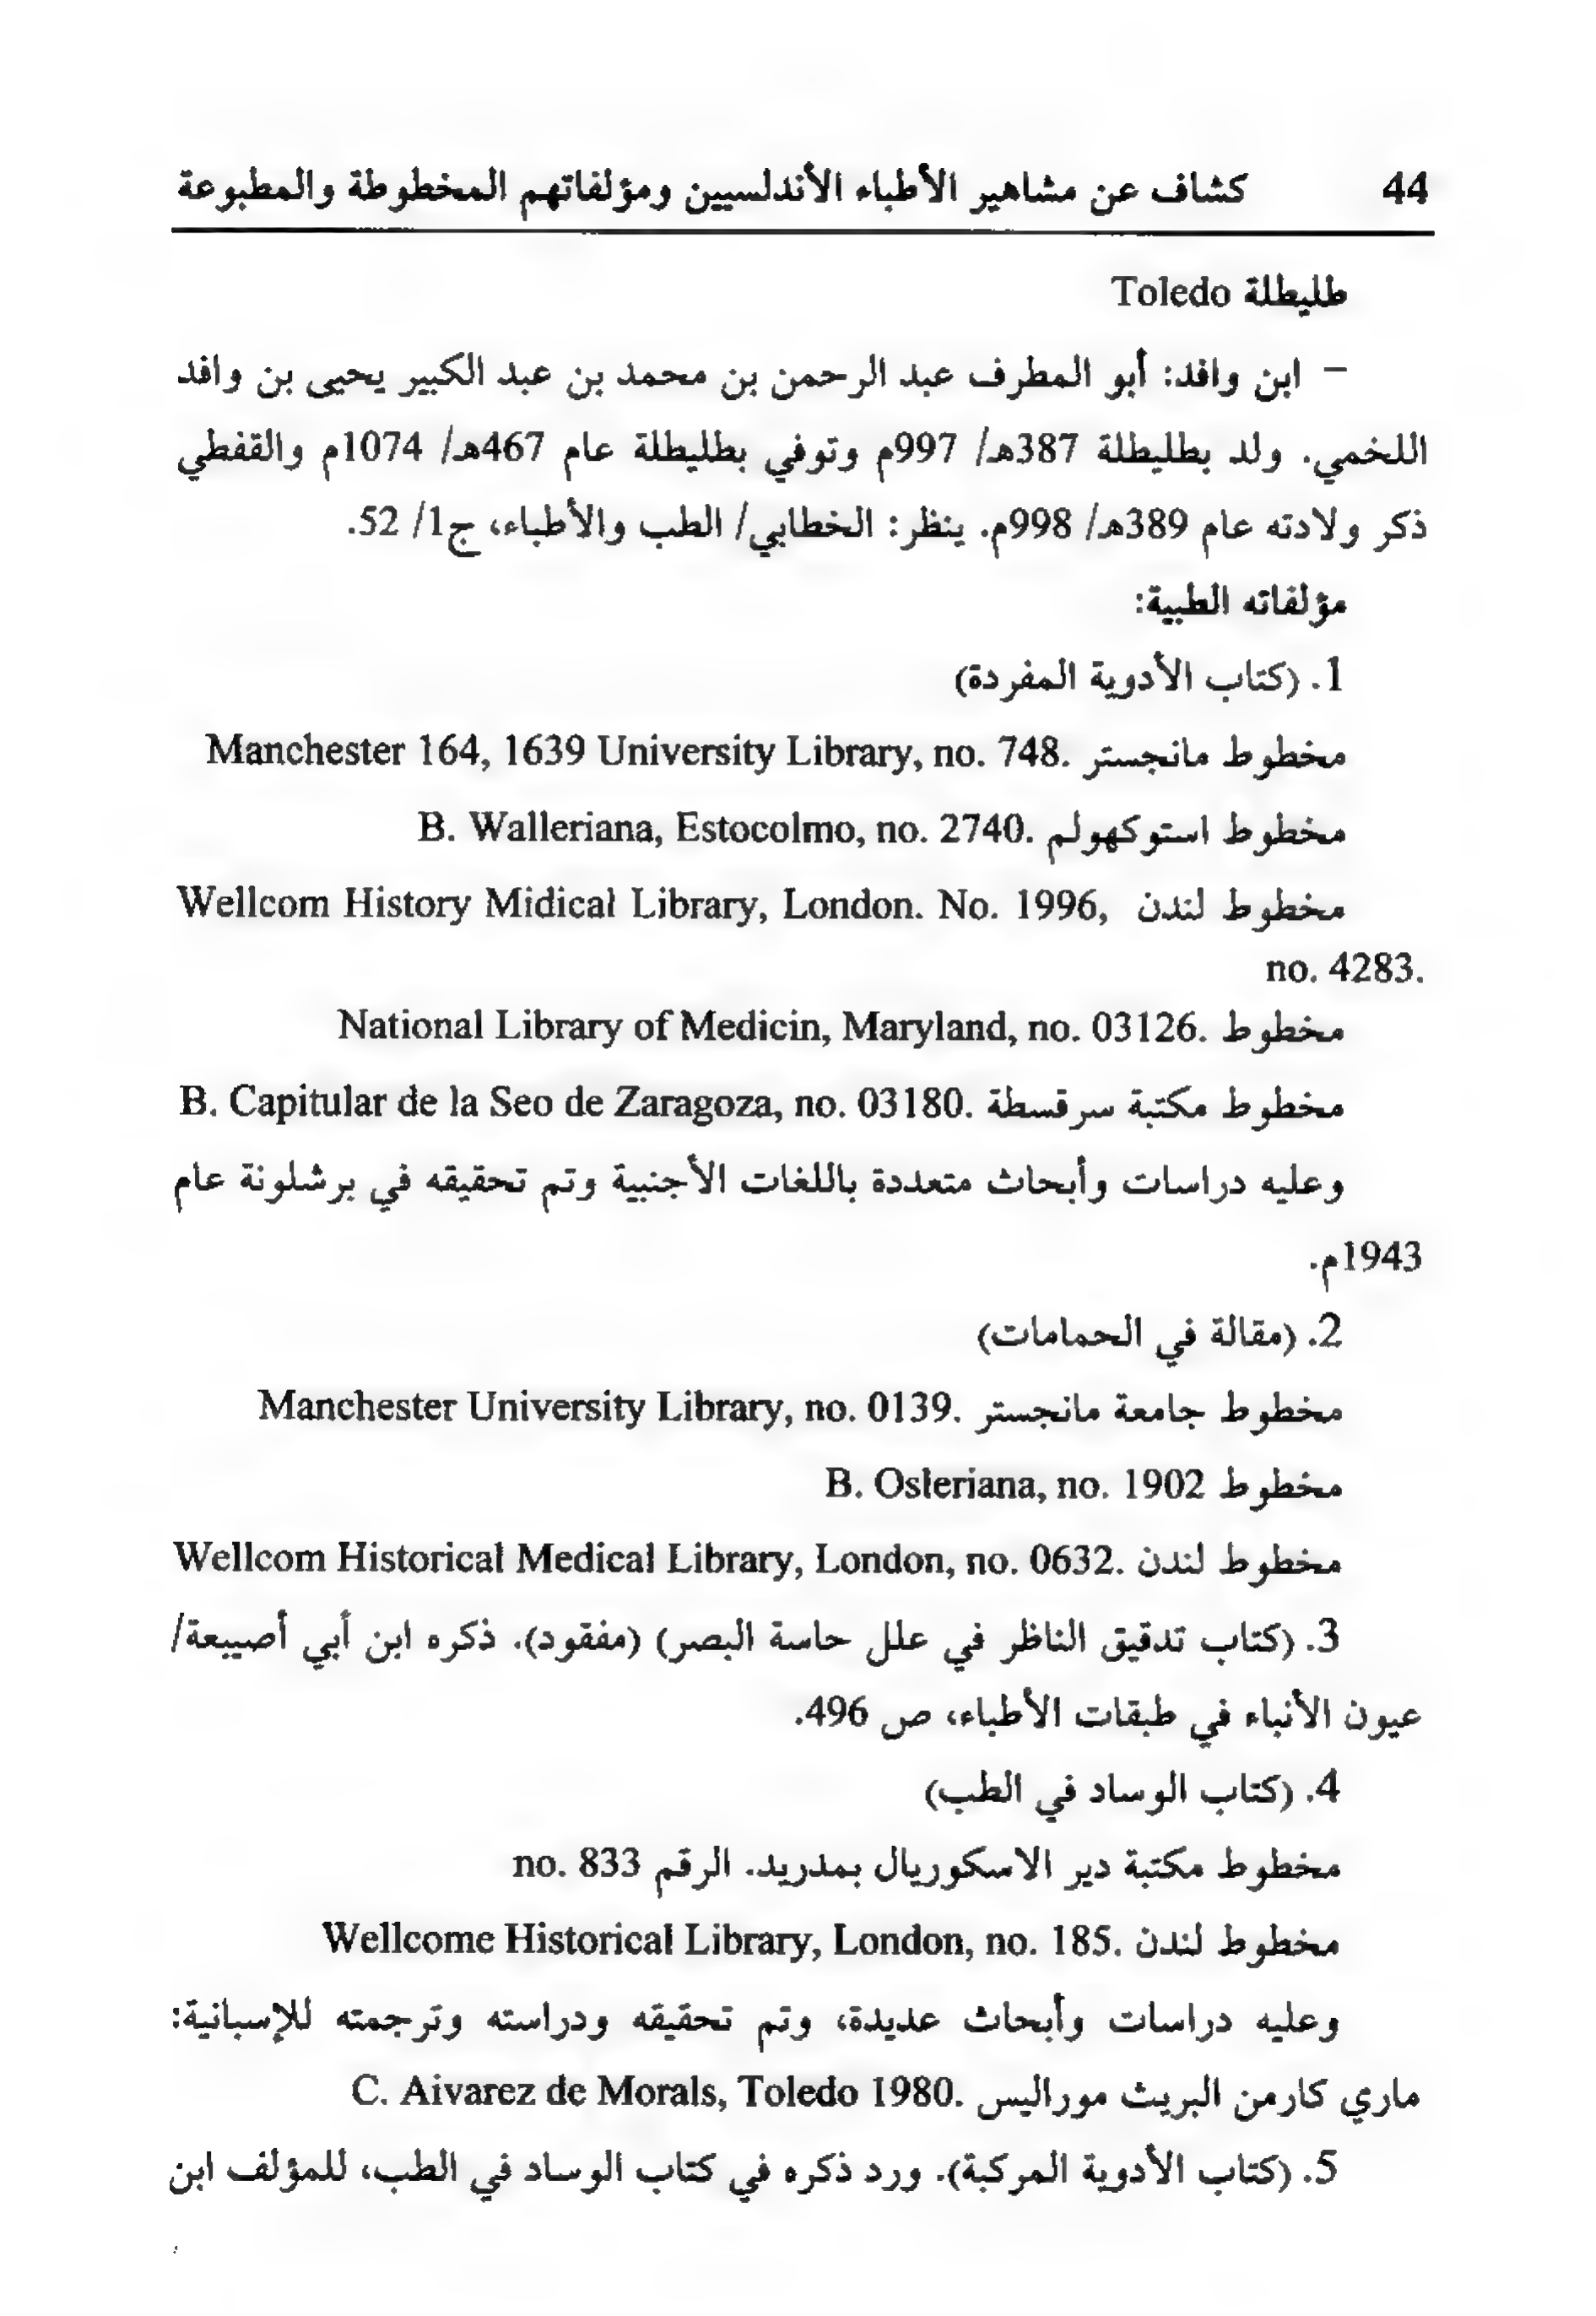 44 كشاف عن مشاهير الأطباء الأندلسيين ومؤلفاتهم المخطوطة والمطبوعة
طليطلة Toledo
– ابن وافد: أبو المطرف عبد الرحمن بن محمد بن عبد الكبير يحيى بن وافد
اللخمي. ولد بطليطلة 387هـ/ 997م وتوفي بطليطلة عام 467هـ/ 1074م والقفطي
ذكر ولادته عام 389هـ/ 998م. ينظر: الخطابي/ الطب والأطباء، ج1/ 52.
مؤلفاته الطبية:
1. (كتاب الأدوية المفردة)
مخطوط مانجستر Manchester 164, 1639 University Library, no. 748.
مخطوط استوكهولم B. Walleriana, Estocolmo, no. 2740.
مخطوط لندن Wellcom History Midical Library, London. No. 1996,
no. 4283.
مخطوط National Library of Medicin, Maryland, no. 03126.
مخطوط مكتبة سرقسطة B. Capitular de la Seo de Zaragoza, no. 03180.
وعليه دراسات وأبحاث متعددة باللغات الأجنبية وتم تحقيقه في برشلونة عام
1943م.
2. (مقالة في الحمامات)
مخطوط جامعة مانجستر Manchester University Library, no. 0139.
مخطوط B. Osleriana, no. 1902
مخطوط لندن Wellcom Historical Medical Library, London, no. 0632.
3. (كتاب تدقيق الناظر في علل حاسة البصر) (مفقود). ذكره ابن أبي أصيبعة/
عيون الأنباء في طبقات الأطباء، ص 496.
4. (كتاب الوساد في الطب)
مخطوط مكتبة دير الاسكوريال بمدريد. الرقم no. 833
مخطوط لندن Wellcome Historical Library, London, no. 185.
وعليه دراسات وأبحاث عديدة، وتم تحقيقه ودراسته وترجمته للإسبانية:
ماري كارمن البريث موراليس C. Aivarez de Morals, Toledo 1980.
5. (كتاب الأدوية المركبة). ورد ذكره في كتاب الوساد في الطب، للمؤلف ابن